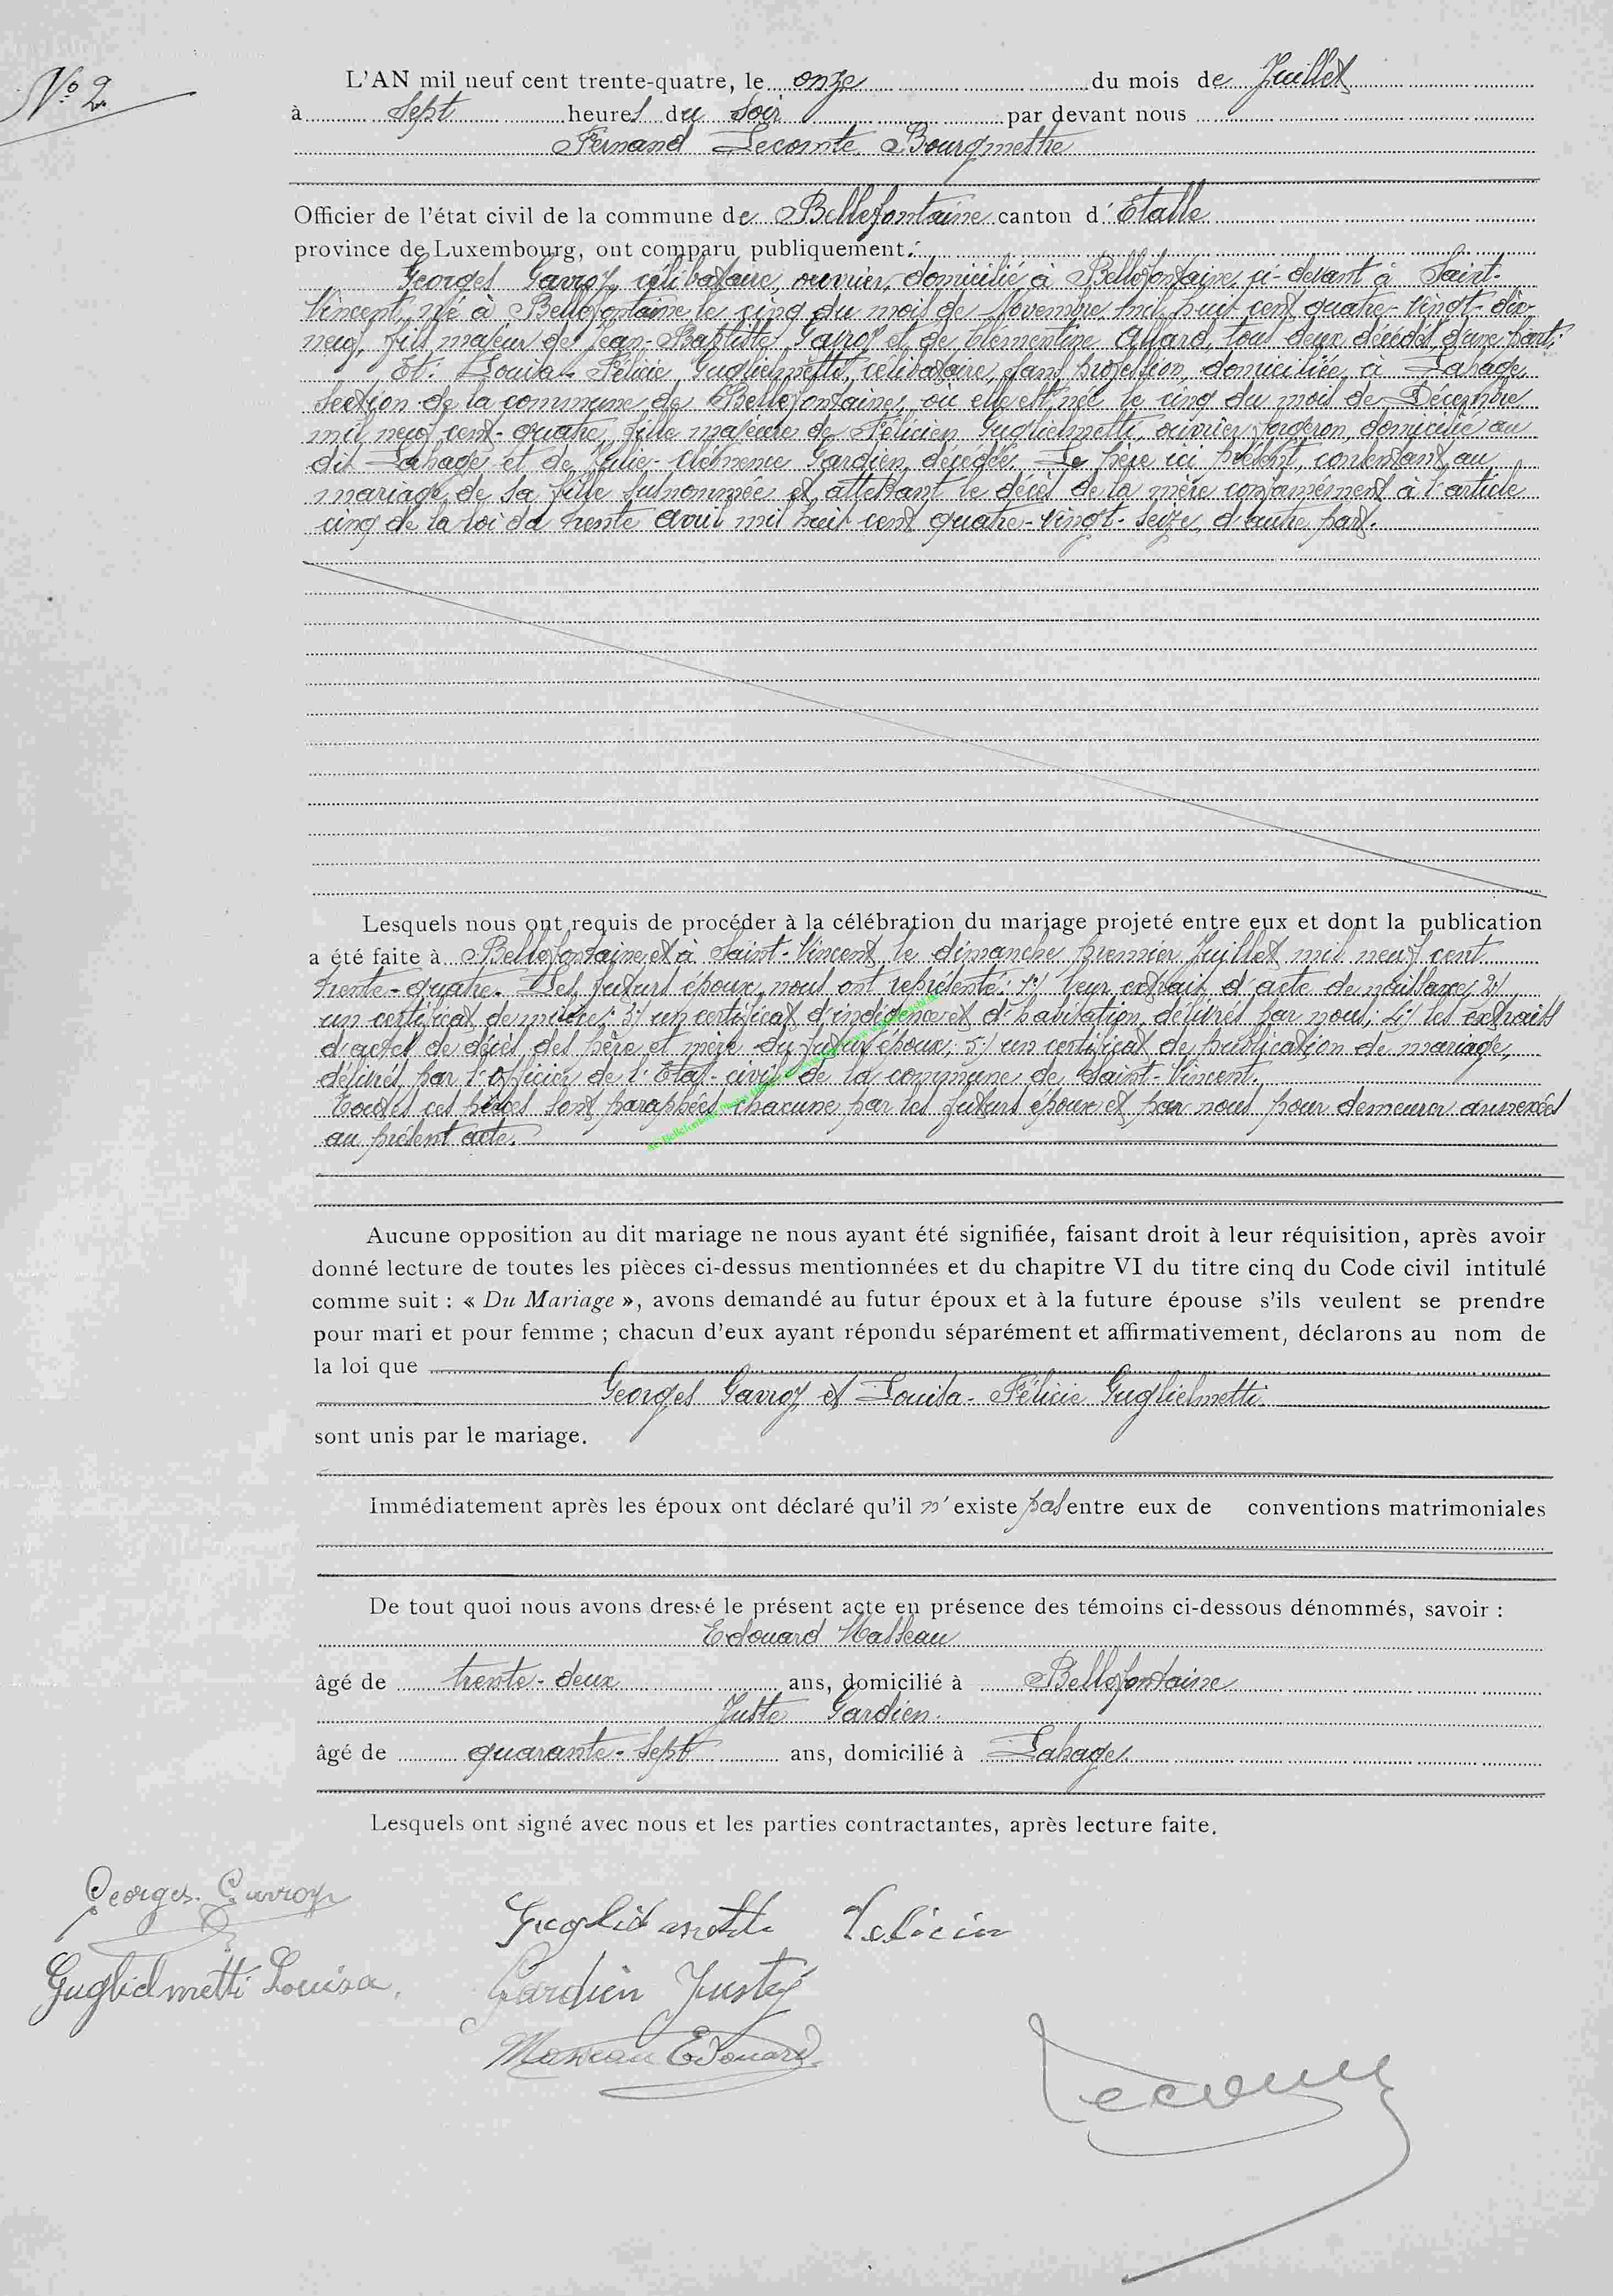 N° 2
L'AN mil neuf cent trente-quatre, le onze du mois de Juillet
à sept heures du soir par devant nous
Fernand Lecomte Bourgmestre
Officier de l'état civil de la commune de Bellefontaine canton d'Etalle
province de Luxembourg, ont comparu publiquement :
Georges Gavroy, célibataire, ouvrier, domicilié à Bellefontaine, ci-devant à Saint-
Vincent, né à Bellefontaine le cinq du mois de Novembre mil huit cent quatre-vingt-dix-
neuf, fils majeur de Jean-Baptiste Gavroy et de Clémentine Allard, tous deux décédés, d'une part;
Et: Louisa-Félicie Guglielmetti, célibataire, sans profession, domiciliée à Lahage,
section de la commune de Bellefontaine, où elle est née le cinq du mois de Décembre
mil neuf cent-quatre, fille majeure de Félicien Guglielmetti, ouvrier forgeron, domicilié au
dit Lahage et de Julie-Clémence Gardien, décédée. Le père ici présent, consentant au
mariage de sa fille susnommée et attestant le décès de la mère conformément à l'article
cinq de la loi du trente avril mil huit cent quatre-vingt-seize, d'autre part.
Lesquels nous ont requis de procéder à la célébration du mariage projeté entre eux et dont la publication
a été faite à Bellefontaine et à Saint-Vincent, le dimanche premier Juillet mil neuf cent
trente-quatre. Les futurs époux nous ont représenté: 1°/ leur extrait d'acte de naissance; 2°/
un certificat de milice; 3°/ un certificat d'indigence et d'habitation, délivrés par nous; 4°/ les extraits
d'actes de décès des père et mère du futur époux; 5°/ un certificat de publication de mariage,
délivré par l'Officier de l'Etat-civil de la commune de Saint-Vincent.
Toutes ces pièces sont paraphées chacune par les futurs époux et par nous pour demeurer annexées
au présent acte.
Aucune opposition au dit mariage ne nous ayant été signifiée, faisant droit à leur réquisition, après avoir
donné lecture de toutes les pièces ci-dessus mentionnées et du chapitre VI du titre cinq du Code civil intitulé
comme suit : « Du Mariage », avons demandé au futur époux et à la future épouse s'ils veulent se prendre
pour mari et pour femme ; chacun d'eux ayant répondu séparément et affirmativement, déclarons au nom de
la loi que
Georges Gavroy et Louisa-Félicie Guglielmetti
sont unis par le mariage.
Immédiatement après les époux ont déclaré qu'il n'existe pas entre eux de conventions matrimoniales
De tout quoi nous avons dressé le présent acte en présence des témoins ci-dessous dénommés, savoir :
Edouard Masseau
âgé de trente-deux ans, domicilié à Bellefontaine
Juste Gardien.
âgé de quarante-sept ans, domicilié à Lahage.
Lesquels ont signé avec nous et les parties contractantes, après lecture faite.
Georges Gavroy
Guglielmetti Félicien
Guglielmetti Louisa.
Gardien Juste
Masseau Edouard
Lecomte